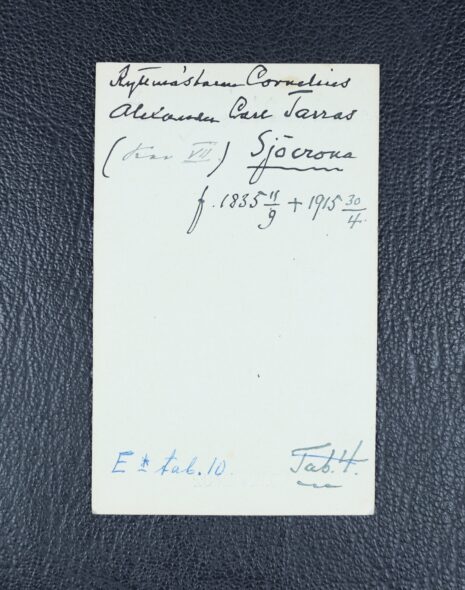 Ryttmästaren Cornelius
Alexander Carl Tarras
( VII ) Sjöcrona
f. 1835 11/9 + 1915 30/4.
E tab. 10. Tab. 4.